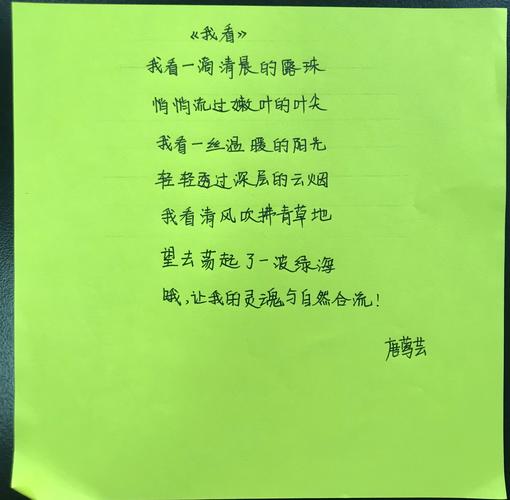 《我看》
我看一滴清晨的露珠
悄悄流过嫩叶的叶尖
我看一丝温暖的阳光
轻轻透过深层的云烟
我看清风吹拂青草地
望去荡起了一波绿海
哦,让我的灵魂与自然合流!
唐莺芸